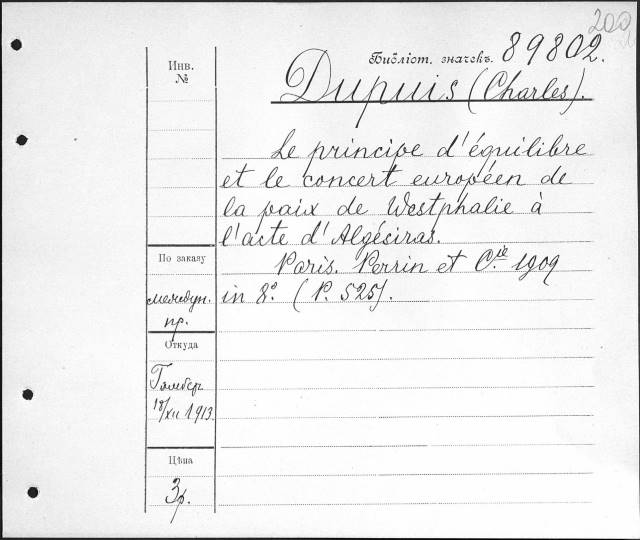 200
Библіот. значекъ. 89802.
Инв.
№
Dupuis (Charles).
Le principe d'équilibre
et le concert européen de
la paix de Westphalie à
l'acte d'Algésiras.
Paris. Perrin et Cie. 1909
in 8º. (P. 525).
По заказу
междун.
пр.
Откуда
18/XII 1913.
Цѣна
3р.